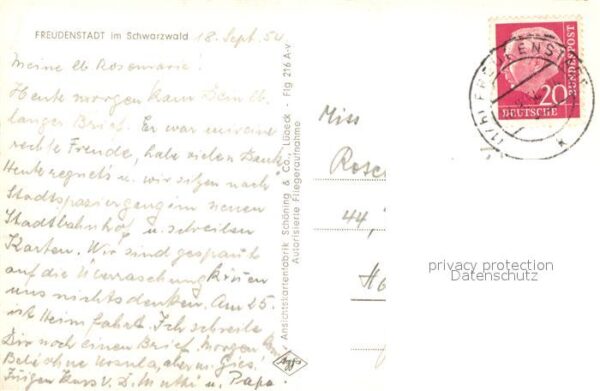 FREUDENSTADT im Schwarzwald 18. Sept. 54
Meine lb. Rosemarie!
Heute morgen kam Dein lb.
langer Brief. Er war mir eine
rechte Freude, habe vielen Dank
Heute regnets u. wir sitzen nach
Stadtspaziergang im neuen
Stadtbahnhof u. schreiben
Karten. Wir sind gespannt
auf die Überraschung können
uns nichts denken. Am 25.
ist Heimfahrt. Ich schreibe
Dir noch einen Brief. Morgen
ohne Ursula, aber m.
Jürgen Kurs v. D. Mutti u. Papa.
Ansichtskartenfabrik Schöning & Co., Lübeck - Flg 216 A-v
Autorisierte Fliegeraufnahme
Agfa
Miss
44,
DEUTSCHE
BUNDESPOST
20
FREUDENSTADT
privacy protection
Datenschutz